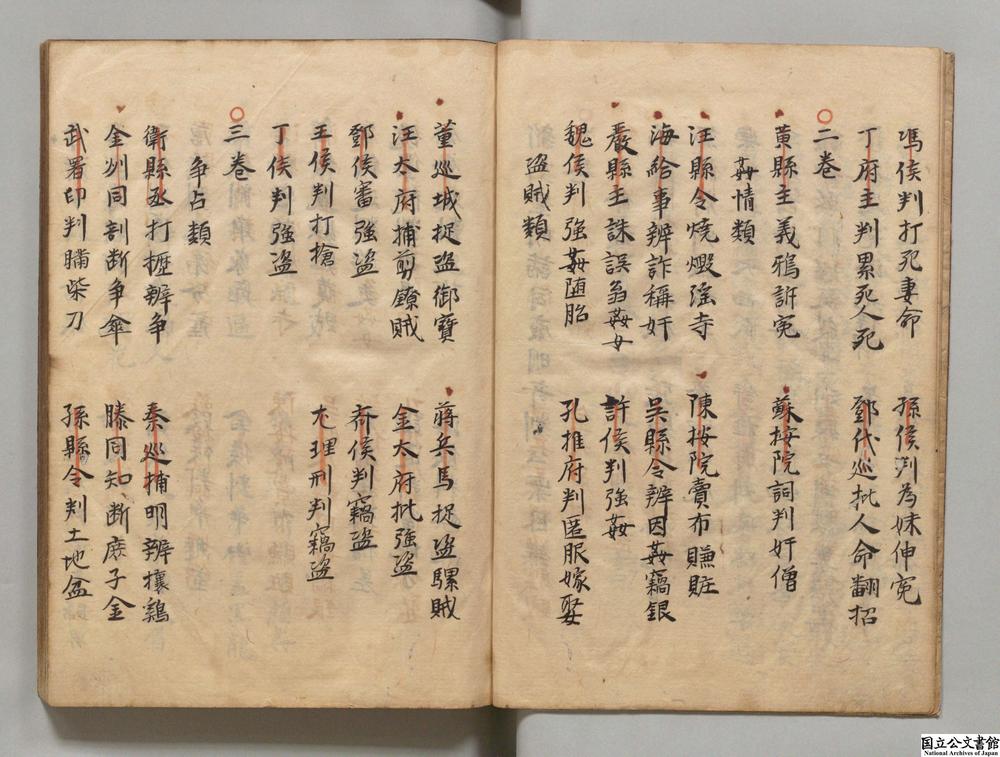 馮侯判打死妻命 孫侯判為妹伸冤
丁府主判累死人死 鄧代巡批人命翻招
二卷
黄縣主義鴉訴冤 蘇按院詞判奸僧
姦情類
汪縣令燒煅滛寺 陳按院賣布賺賍
海給事辨詐稱奸 吳縣令辨因姦竊銀
嚴縣主誅誤翁姦女 許侯判強姦
魏侯判強姦堕胎 孔推府判匿服嫁娶
盜賊類
董巡城捉盜御寶 蔣兵馬捉盜騾賊
汪太府捕剪鐐賊 金太府批強盜
鄧侯審強盜 齊侯判竊盜
王侯判打搶 尤理刑判竊盜
丁侯判強盜
三卷
争占類
衛縣丞打櫪辨争 秦巡捕明辨攘鷄
金州同剖断争傘 滕同知断庶子金
武署印判瞞柴刀 孫縣令判土地盆
国立公文書館
National Archives of Japan